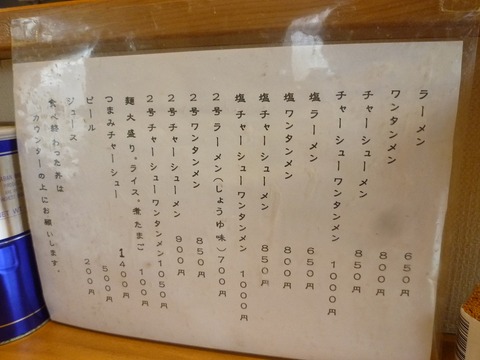 ラーメン 650円
ワンタンメン 800円
チャーシューメン 850円
チャーシューワンタンメン 1000円
塩ラーメン 650円
塩ワンタンメン 800円
塩チャーシューメン 850円
塩チャーシューワンタンメン 1000円
2号ラーメン(しょうゆ味) 700円
2号ワンタンメン 850円
2号チャーシューメン 900円
2号チャーシューワンタンメン 1050円
麺大盛り。ライス。煮たまご 100円
つまみチャーシュー 1400円
ビール 500円
ジュース 200円
食べ終わった丼は
カウンターの上にお願いします。